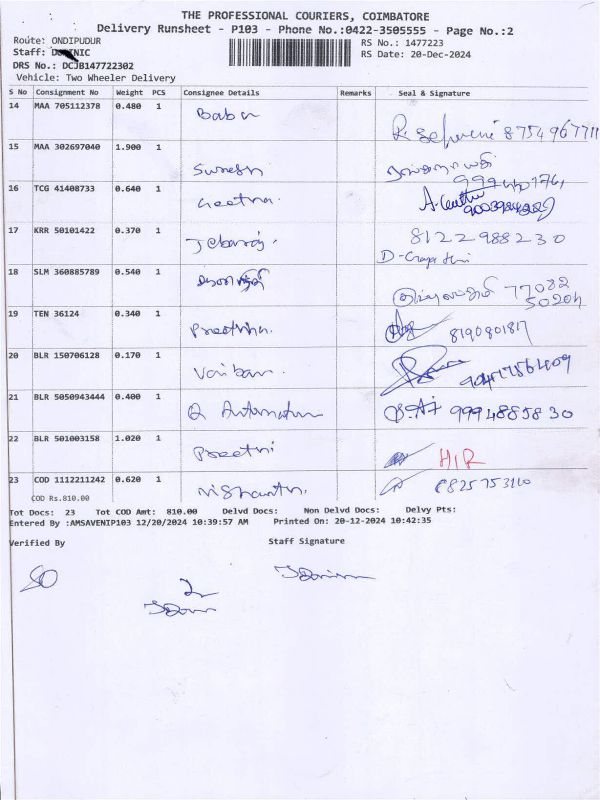 THE PROFESSIONAL COURIERS, COIMBATORE
Delivery Runsheet - P103 - Phone No.:0422-3505555 - Page No.:2
Route: ONDIPUDUR
RS No.: 1477223
Staff:
RS Date: 20-Dec-2024
DRS No.: DCJB147722302
Vehicle: Two Wheeler Delivery
S No Consignment No Weight PCS Consignee Details Remarks Seal & Signature
14 MAA 705112378 0.480 1 Babu
8754967711
15 MAA 302697040 1.900 1 Suresh
16 TCG 41408733 0.640 1 Geetha
17 KRR 50101422 0.370 1 Jebaraj. 8122988230
18 SLM 360885789 0.540 1
77082
50204
19 TEN 36124 0.340 1 Preethha. 8190801817
20 BLR 150706128 0.170 1
21 BLR 5050943444 0.400 1 9994885830
22 BLR 501003158 1.020 1 Preethi H/R
23 COD 1112211242 0.620 1 Nishanth.
COD Rs.810.00
Tot Docs: 23 Tot COD Amt: 810.00 Delvd Docs: Non Delvd Docs: Delvy Pts:
Entered By :AMSAVENIP103 12/20/2024 10:39:57 AM Printed On: 20-12-2024 10:42:35
Verified By Staff Signature